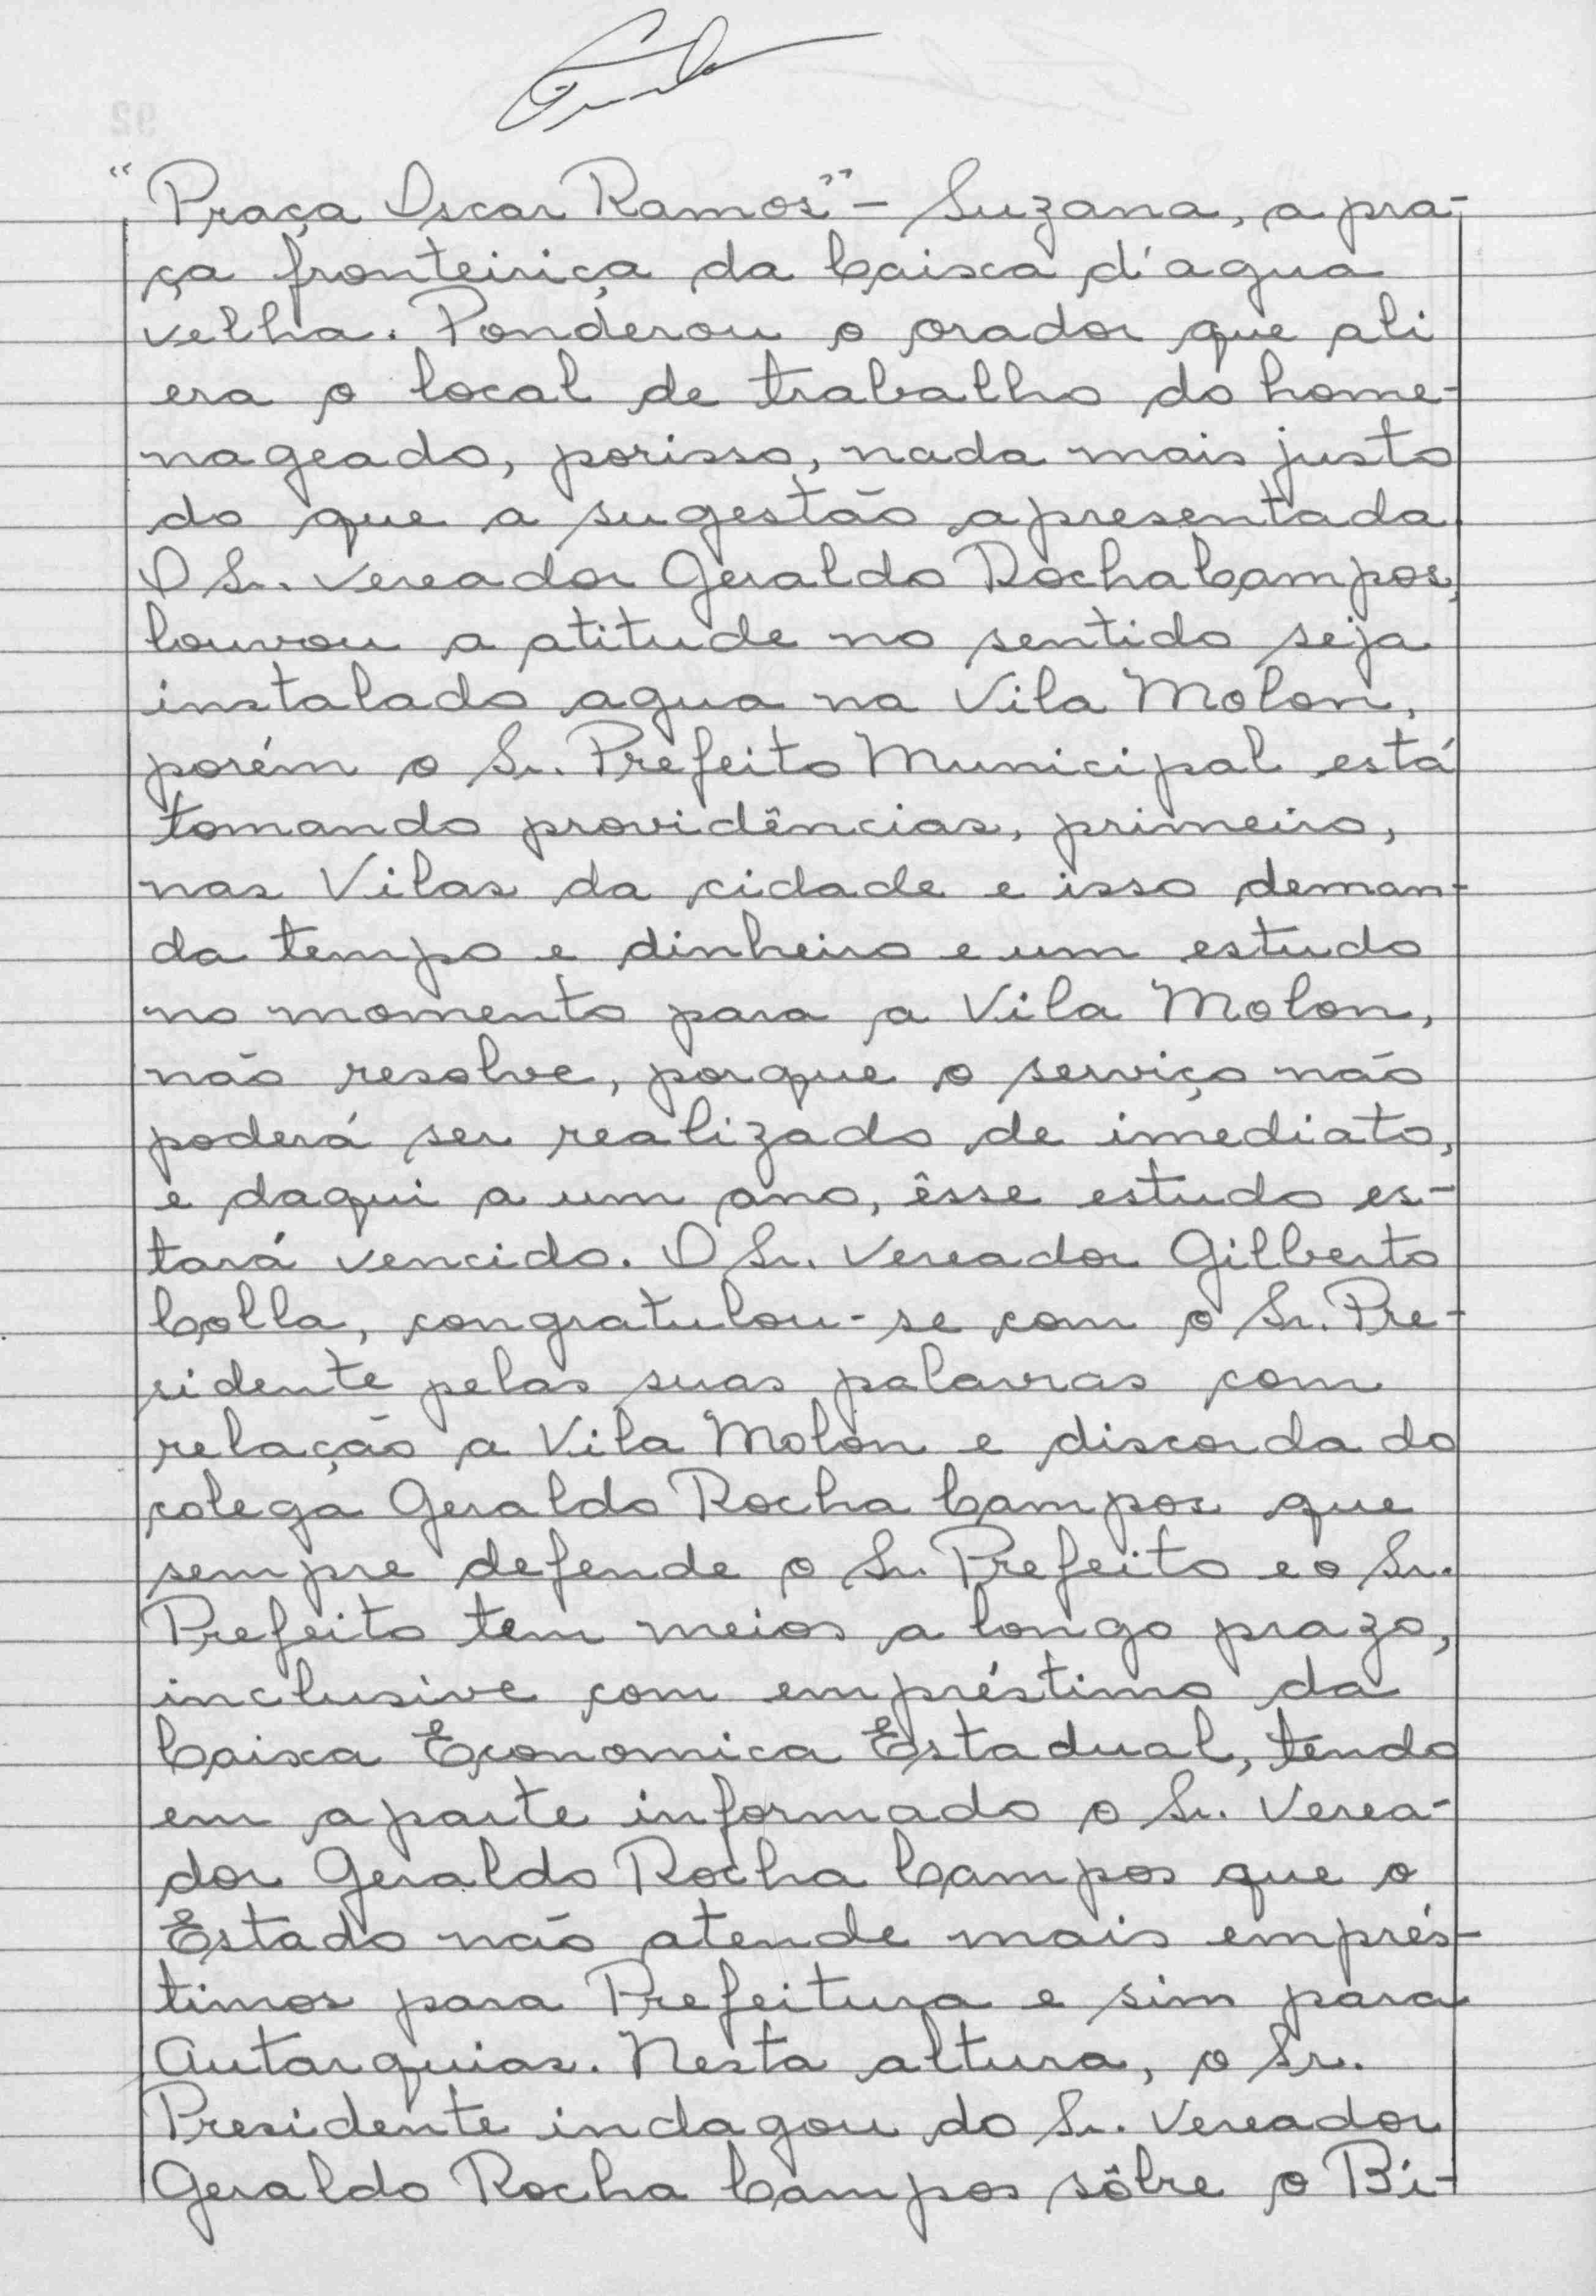 "Praça Oscar Ramos" - Suzana, a pra-
ça fronteiriça da Caixa d'agua
velha. Ponderou o orador que ali
era o local de trabalho do home-
nageado, porisso, nada mais justo
do que a sugestão apresentada.
O Sr. Vereador Geraldo Rocha Campos,
louvou a atitude no sentido seja
instalado agua na Vila Molon,
porém o Sr. Prefeito Municipal está
tomando providências, primeiro,
nas Vilas da cidade e isso deman-
da tempo e dinheiro e um estudo
no momento para a Vila Molon,
não resolve, porque o serviço não
poderá ser realizado de imediato,
e daqui a um ano, êsse estudo es-
tará vencido. O Sr. Vereador Gilberto
Colla, congratulou-se com o Sr. Pre-
sidente pelas suas palavras com
relação a Vila Molon e discorda do
colega Geraldo Rocha Campos que
sempre defende o Sr. Prefeito e o Sr.
Prefeito tem meios a longo prazo,
inclusive com empréstimo da
Caixa Economica Estadual, tendo
em aparte informado o Sr. Verea-
dor Geraldo Rocha Campos que o
Estado não atende mais emprés-
timos para Prefeitura e sim para
Autarquias. Nesta altura, o Sr.
Presidente indagou do Sr. Vereador
Geraldo Rocha Campos sôbre o Bi-